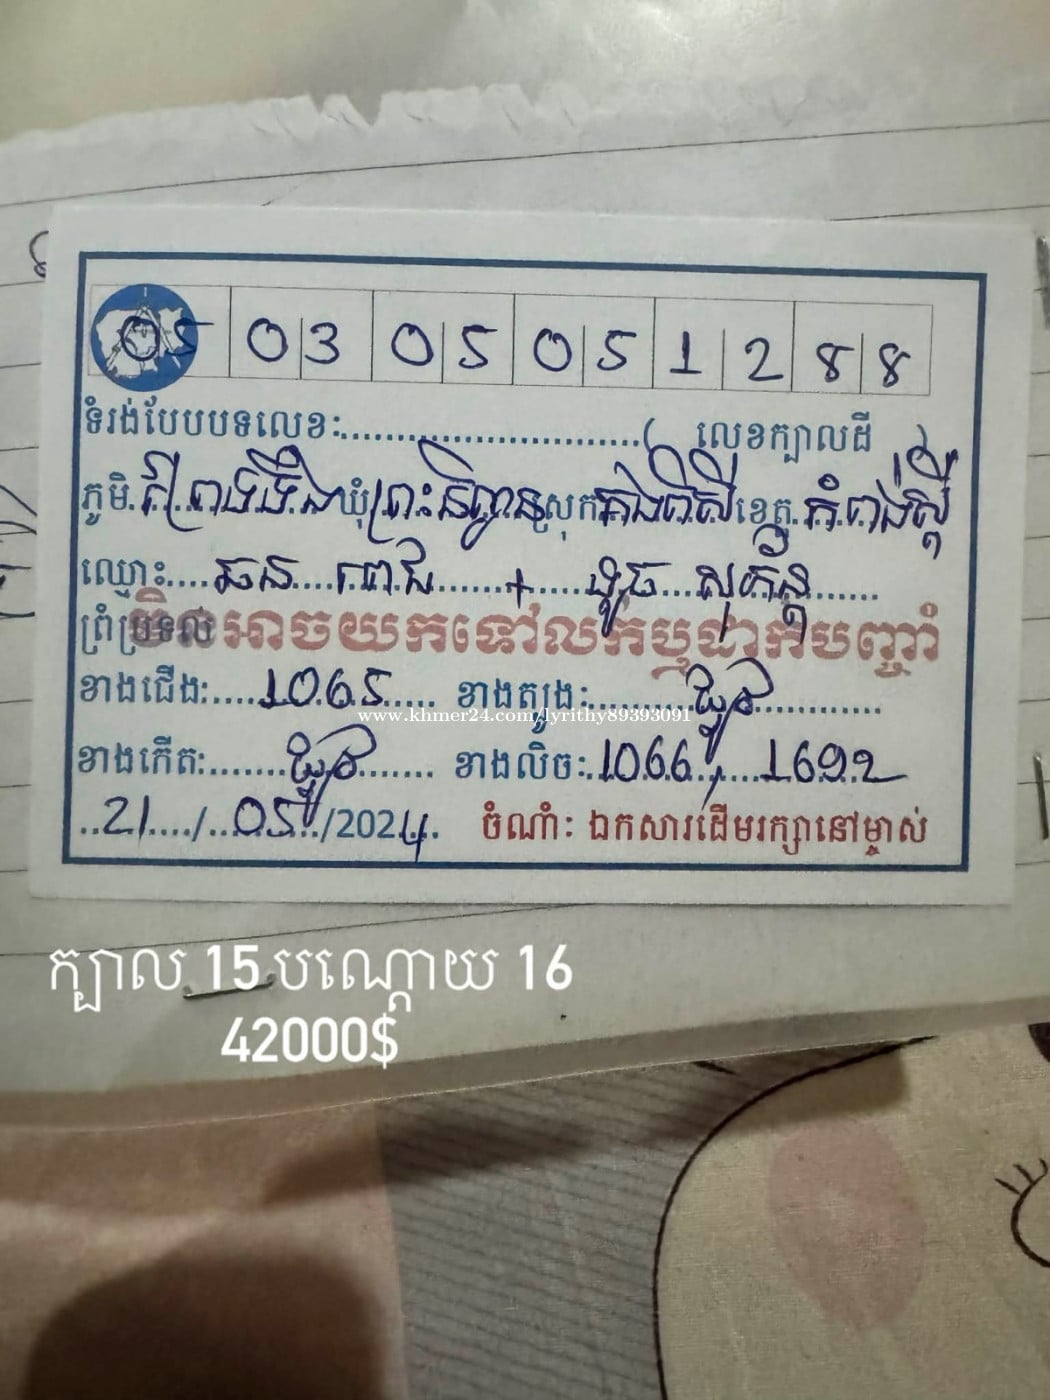 05 03 05 05 1288
ទំរង់បែបបទលេខ:..............................( លេខក្បាលដី )
ភូមិ. ឃុំព្រះនិព្វាន ស្រុកគងពិសី ខេត្ត.កំពង់ស្ពឺ
ឈ្មោះ....ឆន....រាជ.......+.....ទូច...សុភ័ក្ត្រ.......
ព្រំប្រទល់
មិនអាចយកទៅលក់ឬដាក់បញ្ចាំ
ខាងជើង:....1065..... ខាងត្បូង:..........ផ្លូវ............
www.khmer24.com/lyrithy89393091
ខាងកើត:.......ផ្លូវ....... ខាងលិច:.1066,....1692
..21..../..05../2024. ចំណាំ: ឯកសារដើមរក្សានៅម្ចាស់
ក្បាល 15 បណ្ដោយ 16
42000$